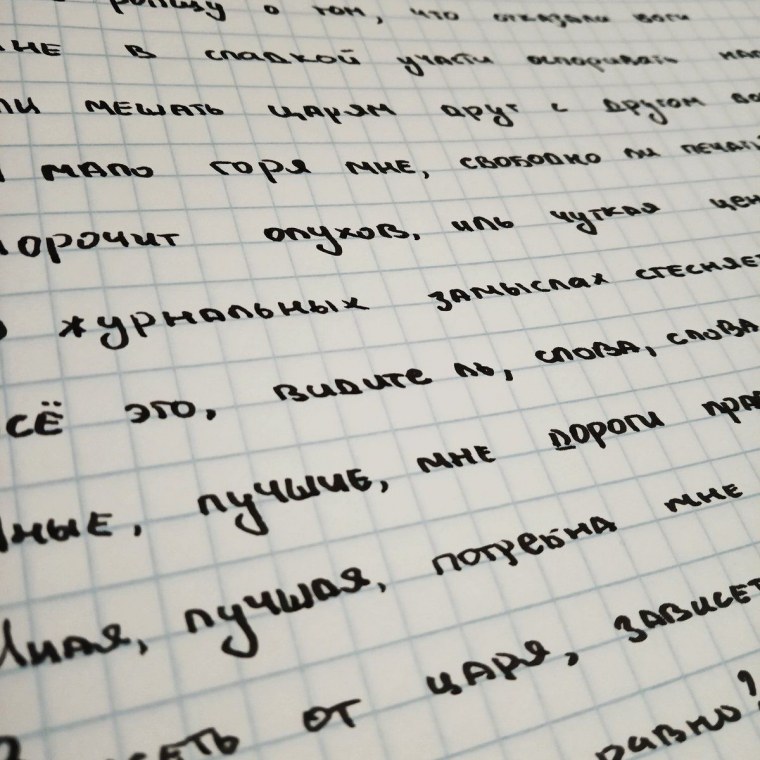 ропщу о том, что отказали боги
мне в сладкой участи оспоривать нал
ли мешать царям друг с другом во
мало горя мне, свободно ли печать
орочит олухов, иль чуткая цен
журнальных замыслах стесняет
сё это, видите ль, слова, слова
ные, лучшие, мне дороги пра
Иная, лучшая, потребна мне
сеть от царя, зависеть
равно?